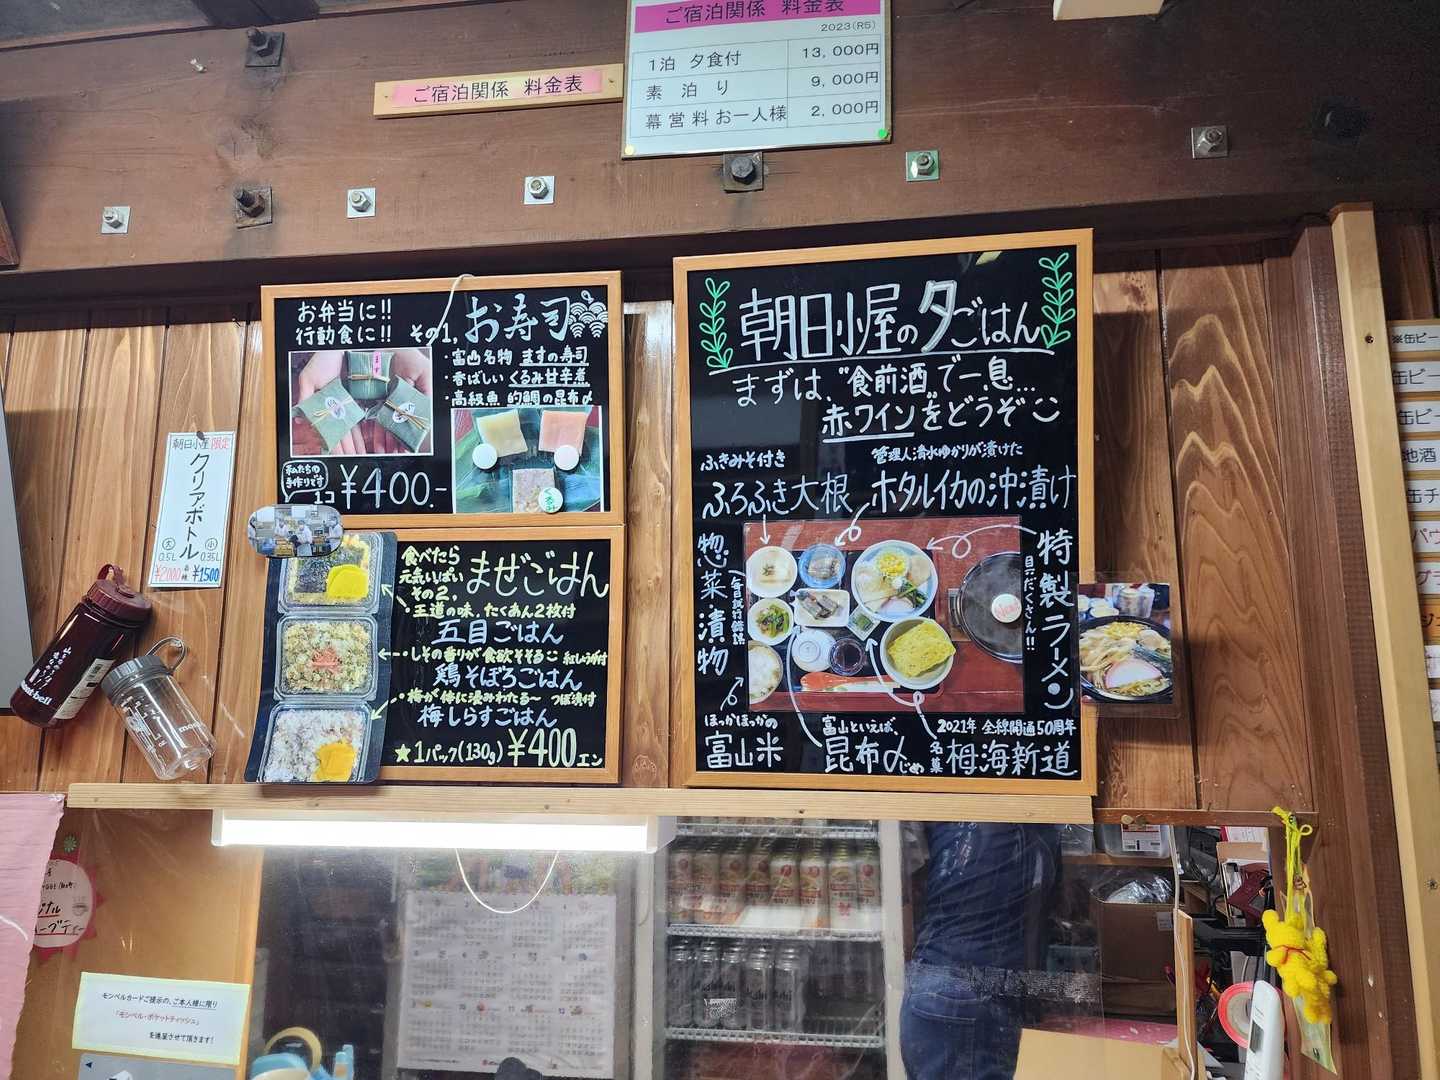 ご宿泊関係 料金表
2023(R5)
1泊 夕食付 13,000円
素泊り 9,000円
幕営料 お一人様 2,000円
ご宿泊関係 料金表
お弁当に!!
行動食に!!
その1, お寿司
・富山名物 ますの寿司
・香ばしい くるみ甘辛煮
・高級魚 的鯛の昆布〆
ます
くるみ
私たちの
手作りです
1コ ¥400.-
食べたら
元気いっぱい
その2, まぜごはん
・王道の味、たくあん2枚付
五目ごはん
・しその香りが食欲そそる 紅しょうが付
鶏そぼろごはん
・梅が体に染みわたる〜 つぼ漬付
梅しらすごはん
★1パック(130g) ¥400エン
朝日小屋の夕ごはん
まずは、“食前酒”で一息...
赤ワインをどうぞ
ふきみそ付き
ふろふき大根
管理人清水ゆかりが漬けた
ホタルイカの沖漬け
惣菜・漬物
毎日試行錯誤
特製ラーメン
具だくさん!!
New!
ほっかほっかの
富山米
富山といえば、
昆布〆じめ
2021年 全線開通50周年
名菓 栂海新道
朝日小屋限定
クリアボトル
大 小
0.5L 0.35L
¥2000 各種 ¥1500
mont-bell
モンベルカードご提示の、ご本人様に限り
「モンベル・ポケットティッシュ」
を進呈させて頂きます!
※缶ビー
缶ビー
缶ビー
地酒
缶チ